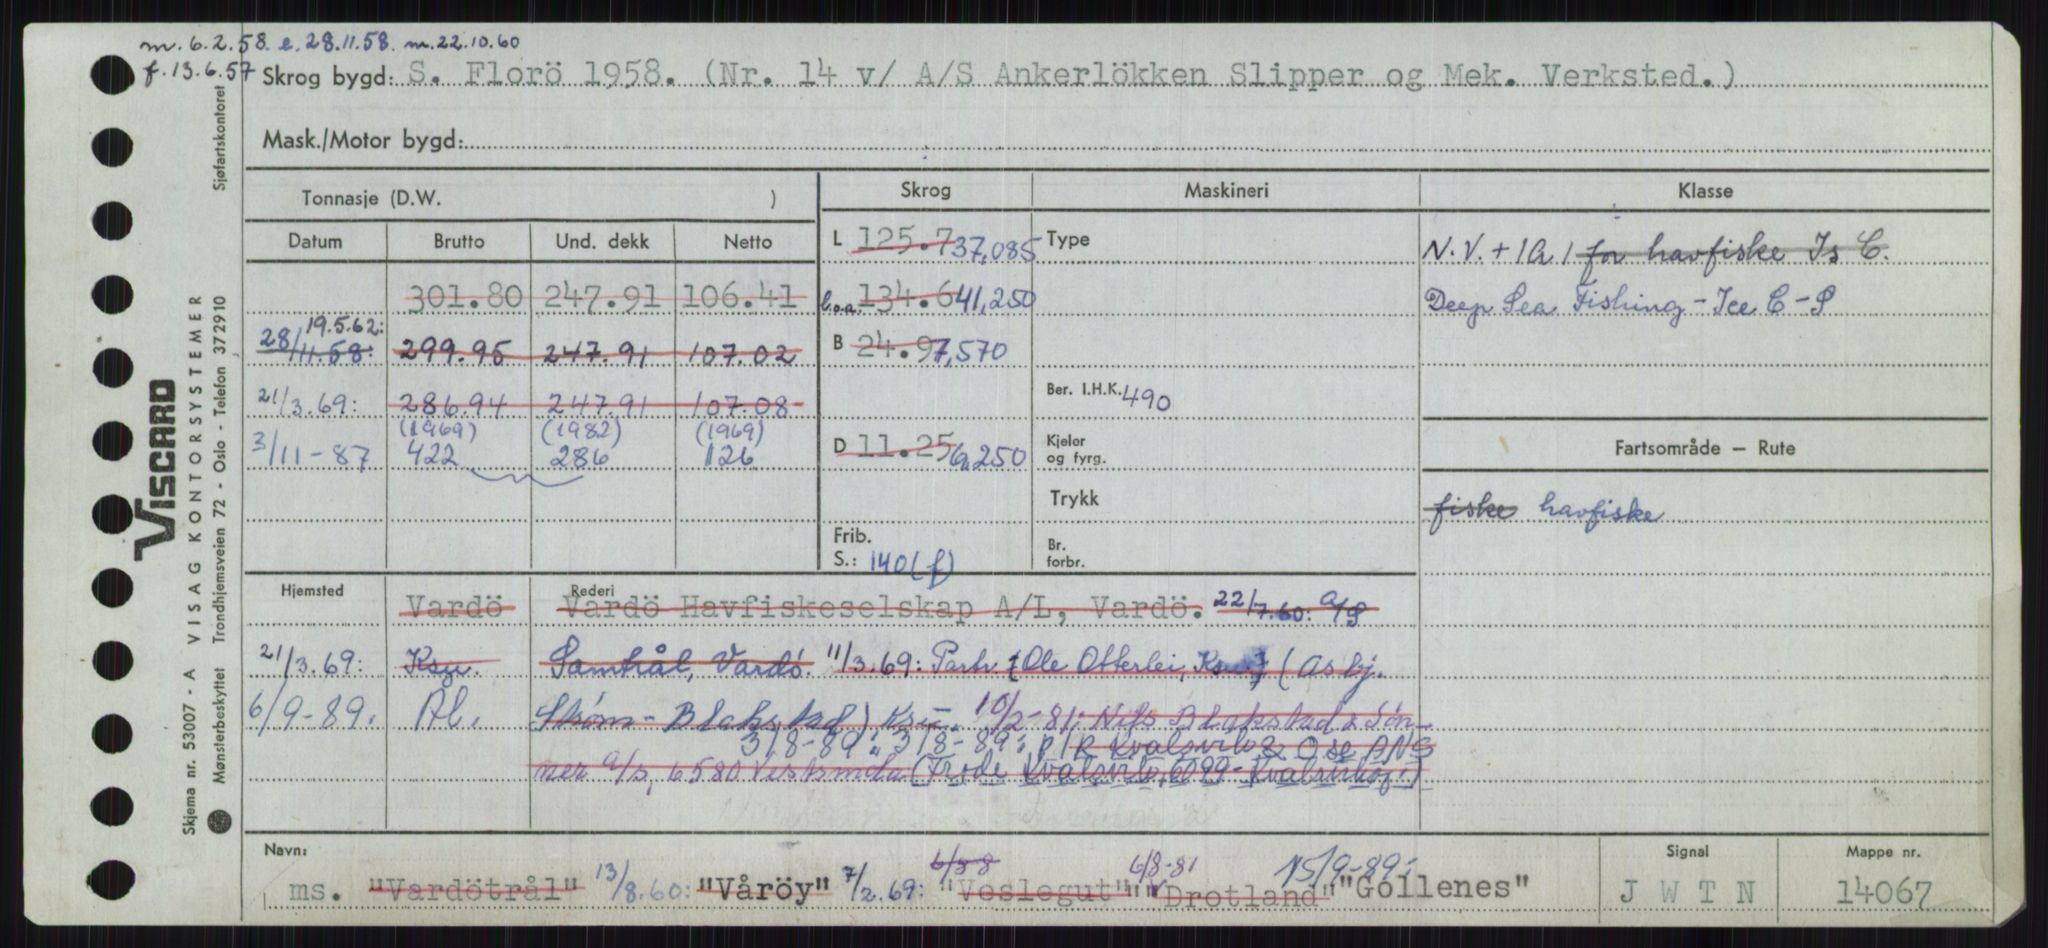 m. 6.2.58. e. 28.11.58. m. 22.10.60
f. 13.6.57 Skrog bygd: S. Florö 1958. (Nr. 14 v/ A/S Ankerlökken Slipper og Mek. Verksted.)
Mask./Motor bygd:
Tonnasje (D.W. ) Skrog Maskineri Klasse
Datum Brutto Und. dekk Netto L 125.7 37,085 Type N.V. + 1A1 for havfiske Is C.
301.80 247.91 106.41 l.o.a. 134.6 41,250 Deep Sea Fishing - Ice C - S
19.5.62:
28/11.58: 299.95 247.91 107.02 B 24.9 7,570
21/3.69: 286.94 247.91 107.08 Ber. I.H.K. 490
(1969) (1982) (1969)
3/11-87 422 286 126 D 11.25 6,250 Kjeler og fyrg. Fartsområde – Rute
Trykk fiske havfiske
Frib. S.: 140 (f) Br. forbr.
Hjemsted Rederi
Vardö Vardö Havfiskeselskap A/L, Vardö. 22/7.60: A/S
21/3.69: Ksu. Samtrål, Vardö. 11/3.69: Partr. (Ole Otterlei, (Asbj.
6/9-89. Ål. Strøm - Blakstad) Ksu. 10/2-81: Nils Blakstad & Søn-
31/8-89: 31/8-89: P/R Kvalsvik & Ose ANS
ner A/S, 6580 Vestsmøla (Frode Kvalsvik, 6099 -
Navn: 6/8-81 15/9-89: Signal Mappe nr.
ms. "Vardötrål" 13/8.60: "Våröy" 7/2.69: "Veslegut" "Drotland" "Gollenes" J W T N 14067
Skjema nr. 53007 - A VISAG KONTORSYSTEMER
VISCARD
Mønsterbeskyttet Trondhjemsveien 72 - Oslo - Telefon 372910 Sjøfartskontoret